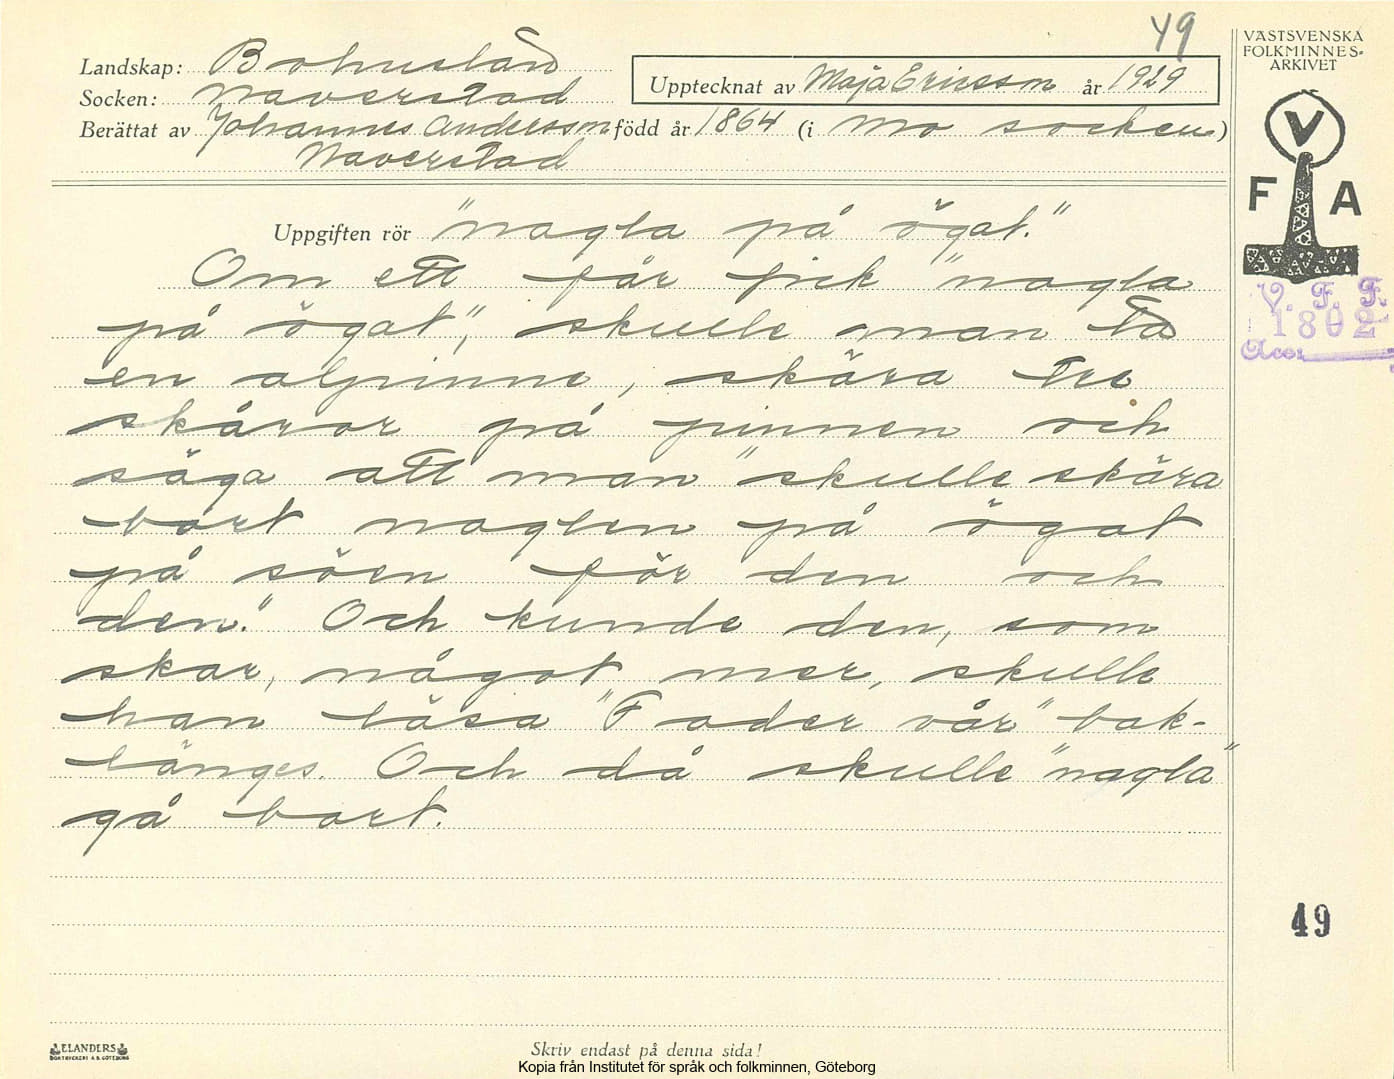 49
VÄSTSVENSKA
FOLKMINNES-
ARKIVET
Landskap: Bohuslän
Socken: Naverstad
Upptecknat av Maja Ericsson år 1929
Berättat av Johannes Andersson född år 1864 (i Mo socken)
Naverstad
V
F A
Uppgiften rör "nagla på ögat."
Om ett får fick "nagla
på ögat", skulle man ta
en alpinne, skära tre
skåror på pinnen och
säga att man "skulle skära
bort naglen på ögat
på söen för den och
den." Och kunde den, som
skar, något mer, skulle
han läsa "Fader vår" bak-
länges. Och då skulle "nagla"
gå bort.
V. F. F.
1802
Acc:
49
ELANDERS
BOKTRYCKERI A.B. GÖTEBORG
Skriv endast på denna sida!
Kopia från Institutet för språk och folkminnen, Göteborg